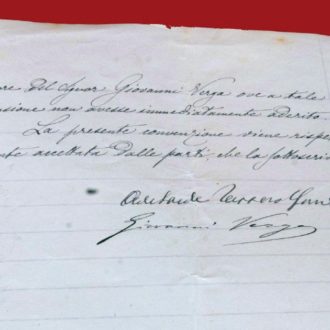 re del Signor Giovanni Verga ove a tale
sione non avesse immediatamente aderito.
La presente convenzione viene rispe
te accettata dalle parti, che la sottoscri
Giovanni Verga